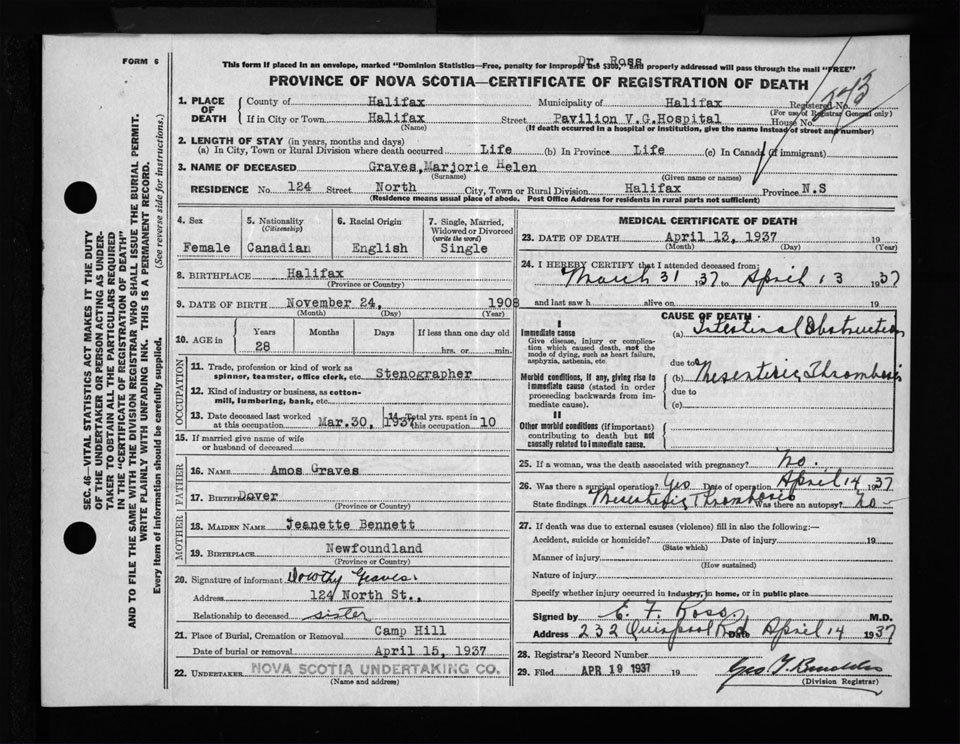 FORM 6
This form if placed in an envelope, marked "Dominion Statistics—Free, penalty for improper use $300," and properly addressed will pass through the mail "FREE"
Dr. Ross
PROVINCE OF NOVA SCOTIA—CERTIFICATE OF REGISTRATION OF DEATH
1. PLACE OF DEATH
County of Halifax Municipality of Halifax Registered No.
(For use of Registrar General only)
If in City or Town Halifax Street Pavilion V.G.Hospital House No.
(Name) (If death occurred in a hospital or institution, give the name instead of street and number)
2. LENGTH OF STAY (in years, months and days)
(a) In City, Town or Rural Division where death occurred Life (b) In Province Life (c) In Canada (if immigrant)
3. NAME OF DECEASED Graves, Marjorie Helen
(Surname) (Given name or names)
RESIDENCE No. 124 Street North City, Town or Rural Division Halifax Province N.S
(Residence means usual place of abode. Post Office Address for residents in rural parts not sufficient)
SEC. 46—VITAL STATISTICS ACT MAKES IT THE DUTY
OF THE UNDERTAKER OR PERSON ACTING AS UNDER-
TAKER TO OBTAIN ALL THE PARTICULARS REQUIRED
IN THE "CERTIFICATE OF REGISTRATION OF DEATH"
AND TO FILE THE SAME WITH THE DIVISION REGISTRAR WHO SHALL ISSUE THE BURIAL PERMIT.
WRITE PLAINLY WITH UNFADING INK. THIS IS A PERMANENT RECORD.
Every item of information should be carefully supplied. (See reverse side for instructions.)
4. Sex
Female
5. Nationality
(Citizenship)
Canadian
6. Racial Origin
English
7. Single, Married,
Widowed or Divorced
(write the word)
Single
8. BIRTHPLACE Halifax
(Province or Country)
9. DATE OF BIRTH November 24, 1908
(Month) (Day) (Year)
10. AGE in
Years Months Days If less than one day old
28 hrs. or min.
OCCUPATION
11. Trade, profession or kind of work as
spinner, teamster, office clerk, etc. Stenographer
12. Kind of industry or business, as cotton-
mill, lumbering, bank, etc.
13. Date deceased last worked
at this occupation Mar.30, 1937
14. Total yrs. spent in
this occupation 10
15. If married give name of wife
or husband of deceased
FATHER
16. NAME Amos Graves
17. BIRTHPLACE Dover
(Province or Country)
MOTHER
18. MAIDEN NAME Jeanette Bennett
19. BIRTHPLACE Newfoundland
(Province or Country)
20. Signature of informant Dorothy Graves
Address 124 North St.,
Relationship to deceased sister
21. Place of Burial, Cremation or Removal Camp Hill
Date of burial or removal April 15, 1937
22. UNDERTAKER NOVA SCOTIA UNDERTAKING CO.
(Name and address)
MEDICAL CERTIFICATE OF DEATH
23. DATE OF DEATH April 13, 1937 19
(Month) (Day) (Year)
24. I HEREBY CERTIFY that I attended deceased from
March 31 1937 to April 13 1937
and last saw h alive on 19
CAUSE OF DEATH
I
Immediate cause
Give disease, injury or complica-
tion which caused death, not the
mode of dying, such as heart failure,
asphyxia, asthenia, etc
(a) Intestinal Obstruction
due to
Morbid conditions, if any, giving rise to
immediate cause (stated in order
proceeding backwards from im-
mediate cause).
(b) Mesenteric Thrombosis
due to
(c)
II
Other morbid conditions (if important)
contributing to death but not
causally related to immediate cause.
25. If a woman, was the death associated with pregnancy? No.
26. Was there a surgical operation? Yes Date of operation April 14 1937
State findings Mesenteric Thrombosis Was there an autopsy? No
27. If death was due to external causes (violence) fill in also the following:—
Accident, suicide or homicide? Date of injury 19
(State which)
Manner of injury
(How sustained)
Nature of injury
Specify whether injury occurred in industry, in home, or in public place
Signed by E. F. Ross M.D.
Address 232 Quinpool Rd Date April 14 1937
28. Registrar's Record Number
29. Filed APR 19 1937 19
(Division Registrar)